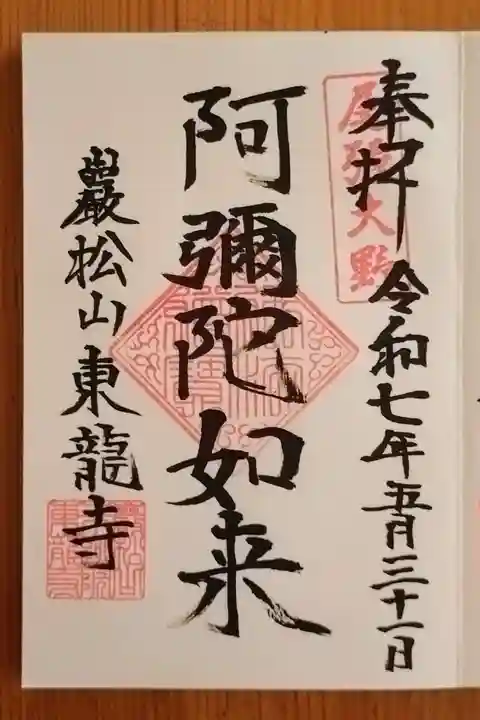 奉拝 令和七年五月三十一日
尾張大野
阿彌陀如来
巖松山東龍寺